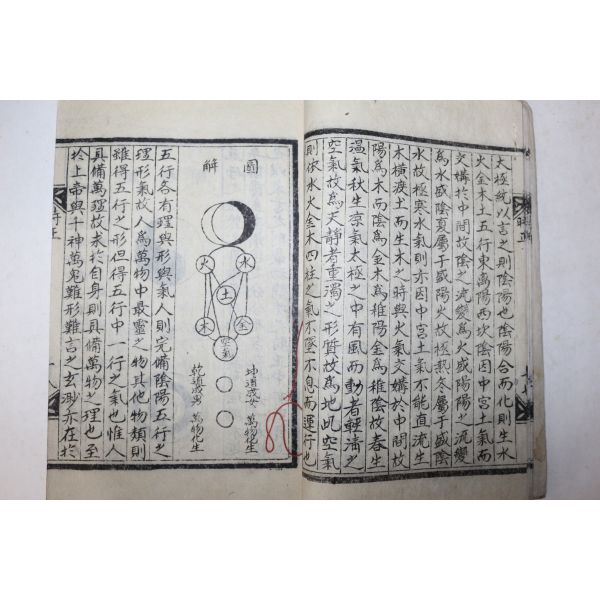 太極統以言之則陰陽也陰陽合而化則生水
火金木土五行東萬陽西坎陰因中宮之氣而
交媾於中間故陰之流變爲火盛陽陽之流變
爲水盛陰夏屬于盛陽火故極熱冬屬于盛陰
水故極寒水氣則亦因中宮土氣不能直流生
木橫浸土而生木之時與火氣交媾於中間故
陽爲木而陰爲金木爲稚陽金爲稚陰故春生
溫氣秋生凉氣太極之中有風而動者輕淸之
空氣故爲天靜者重濁之形質故爲地此空氣
則依水火金木四柱之氣不墜不息而運行也
圖解
火
水
土
木
金
空氣
坤道成女 萬物化生
乾道成男 萬物化生
五行各有理與形與氣人則完備陰陽五行之
理形氣故人爲萬物中最靈之物其他物類則
雖得五行之形但得五行中一行之氣也惟人
具備萬理故求於自身則具備萬物之理也至
於上帝與千神萬鬼難形難言之玄渺亦在於